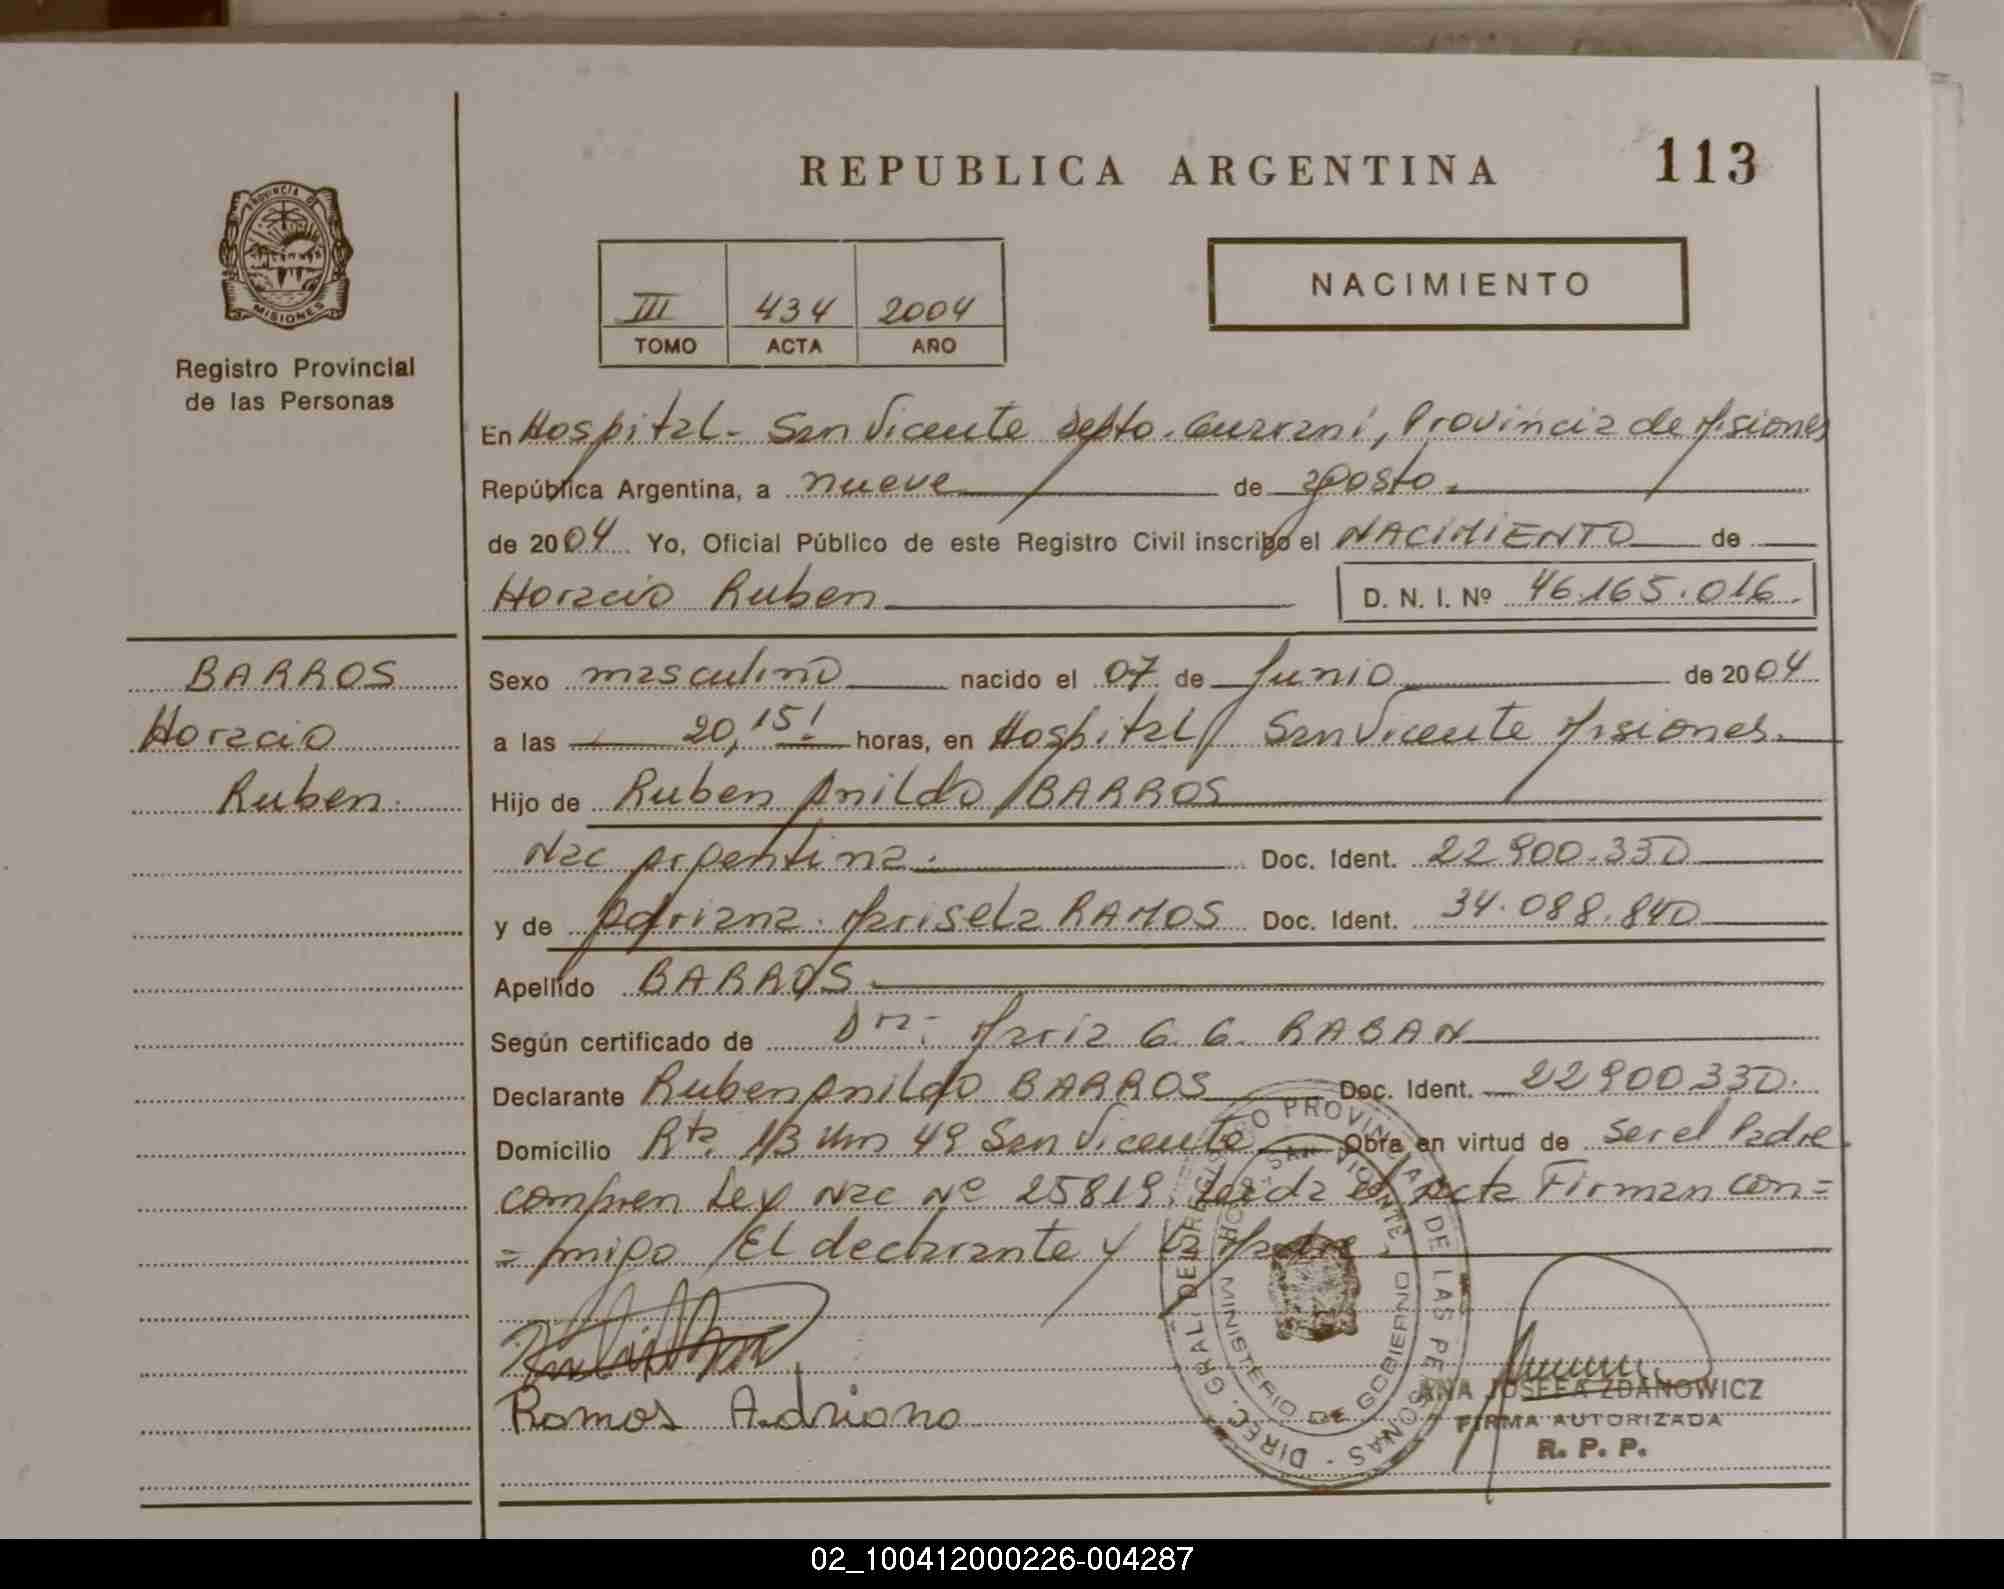 REPUBLICA ARGENTINA 113
PROVINCIA DE
MISIONES
Registro Provincial
de las Personas
III 434 2004
TOMO ACTA AÑO
NACIMIENTO
En Hospital - San Vicente Depto. Guarani, Provincia de Misiones
República Argentina, a nueve de agosto.
de 2004 Yo, Oficial Público de este Registro Civil inscribo el NACIMIENTO de
Horacio Ruben D. N. I. Nº 46.165.016.
BARROS
Horacio
Ruben.
Sexo masculino nacido el 07 de Junio de 2004
a las 20,15! horas, en Hospital San Vicente Misiones.
Hijo de Ruben Anildo BARROS
Nac Argentina. Doc. Ident. 22.900.330
y de Adriana Marisela RAMOS Doc. Ident. 34.088.840
Apellido BARROS
Según certificado de Dra. Maria G. G. RABAN
Declarante Ruben Anildo BARROS Doc. Ident. 22900330.
Domicilio Rta. 13 Km 49 San Vicente Obra en virtud de ser el Padre.
Ley Nac Nº 25819. Leida el Acta Firman con=
=migo El declarante y la Madre.
Ramos Adriana
DIREC. GRAL. DEL REGISTRO PROVINCIAL DE LAS PERSONAS
SAN VICENTE
MINISTERIO DE GOBIERNO
ANA JOSEFA ZDANOWICZ
FIRMA AUTORIZADA
R. P. P.
02_100412000226-004287